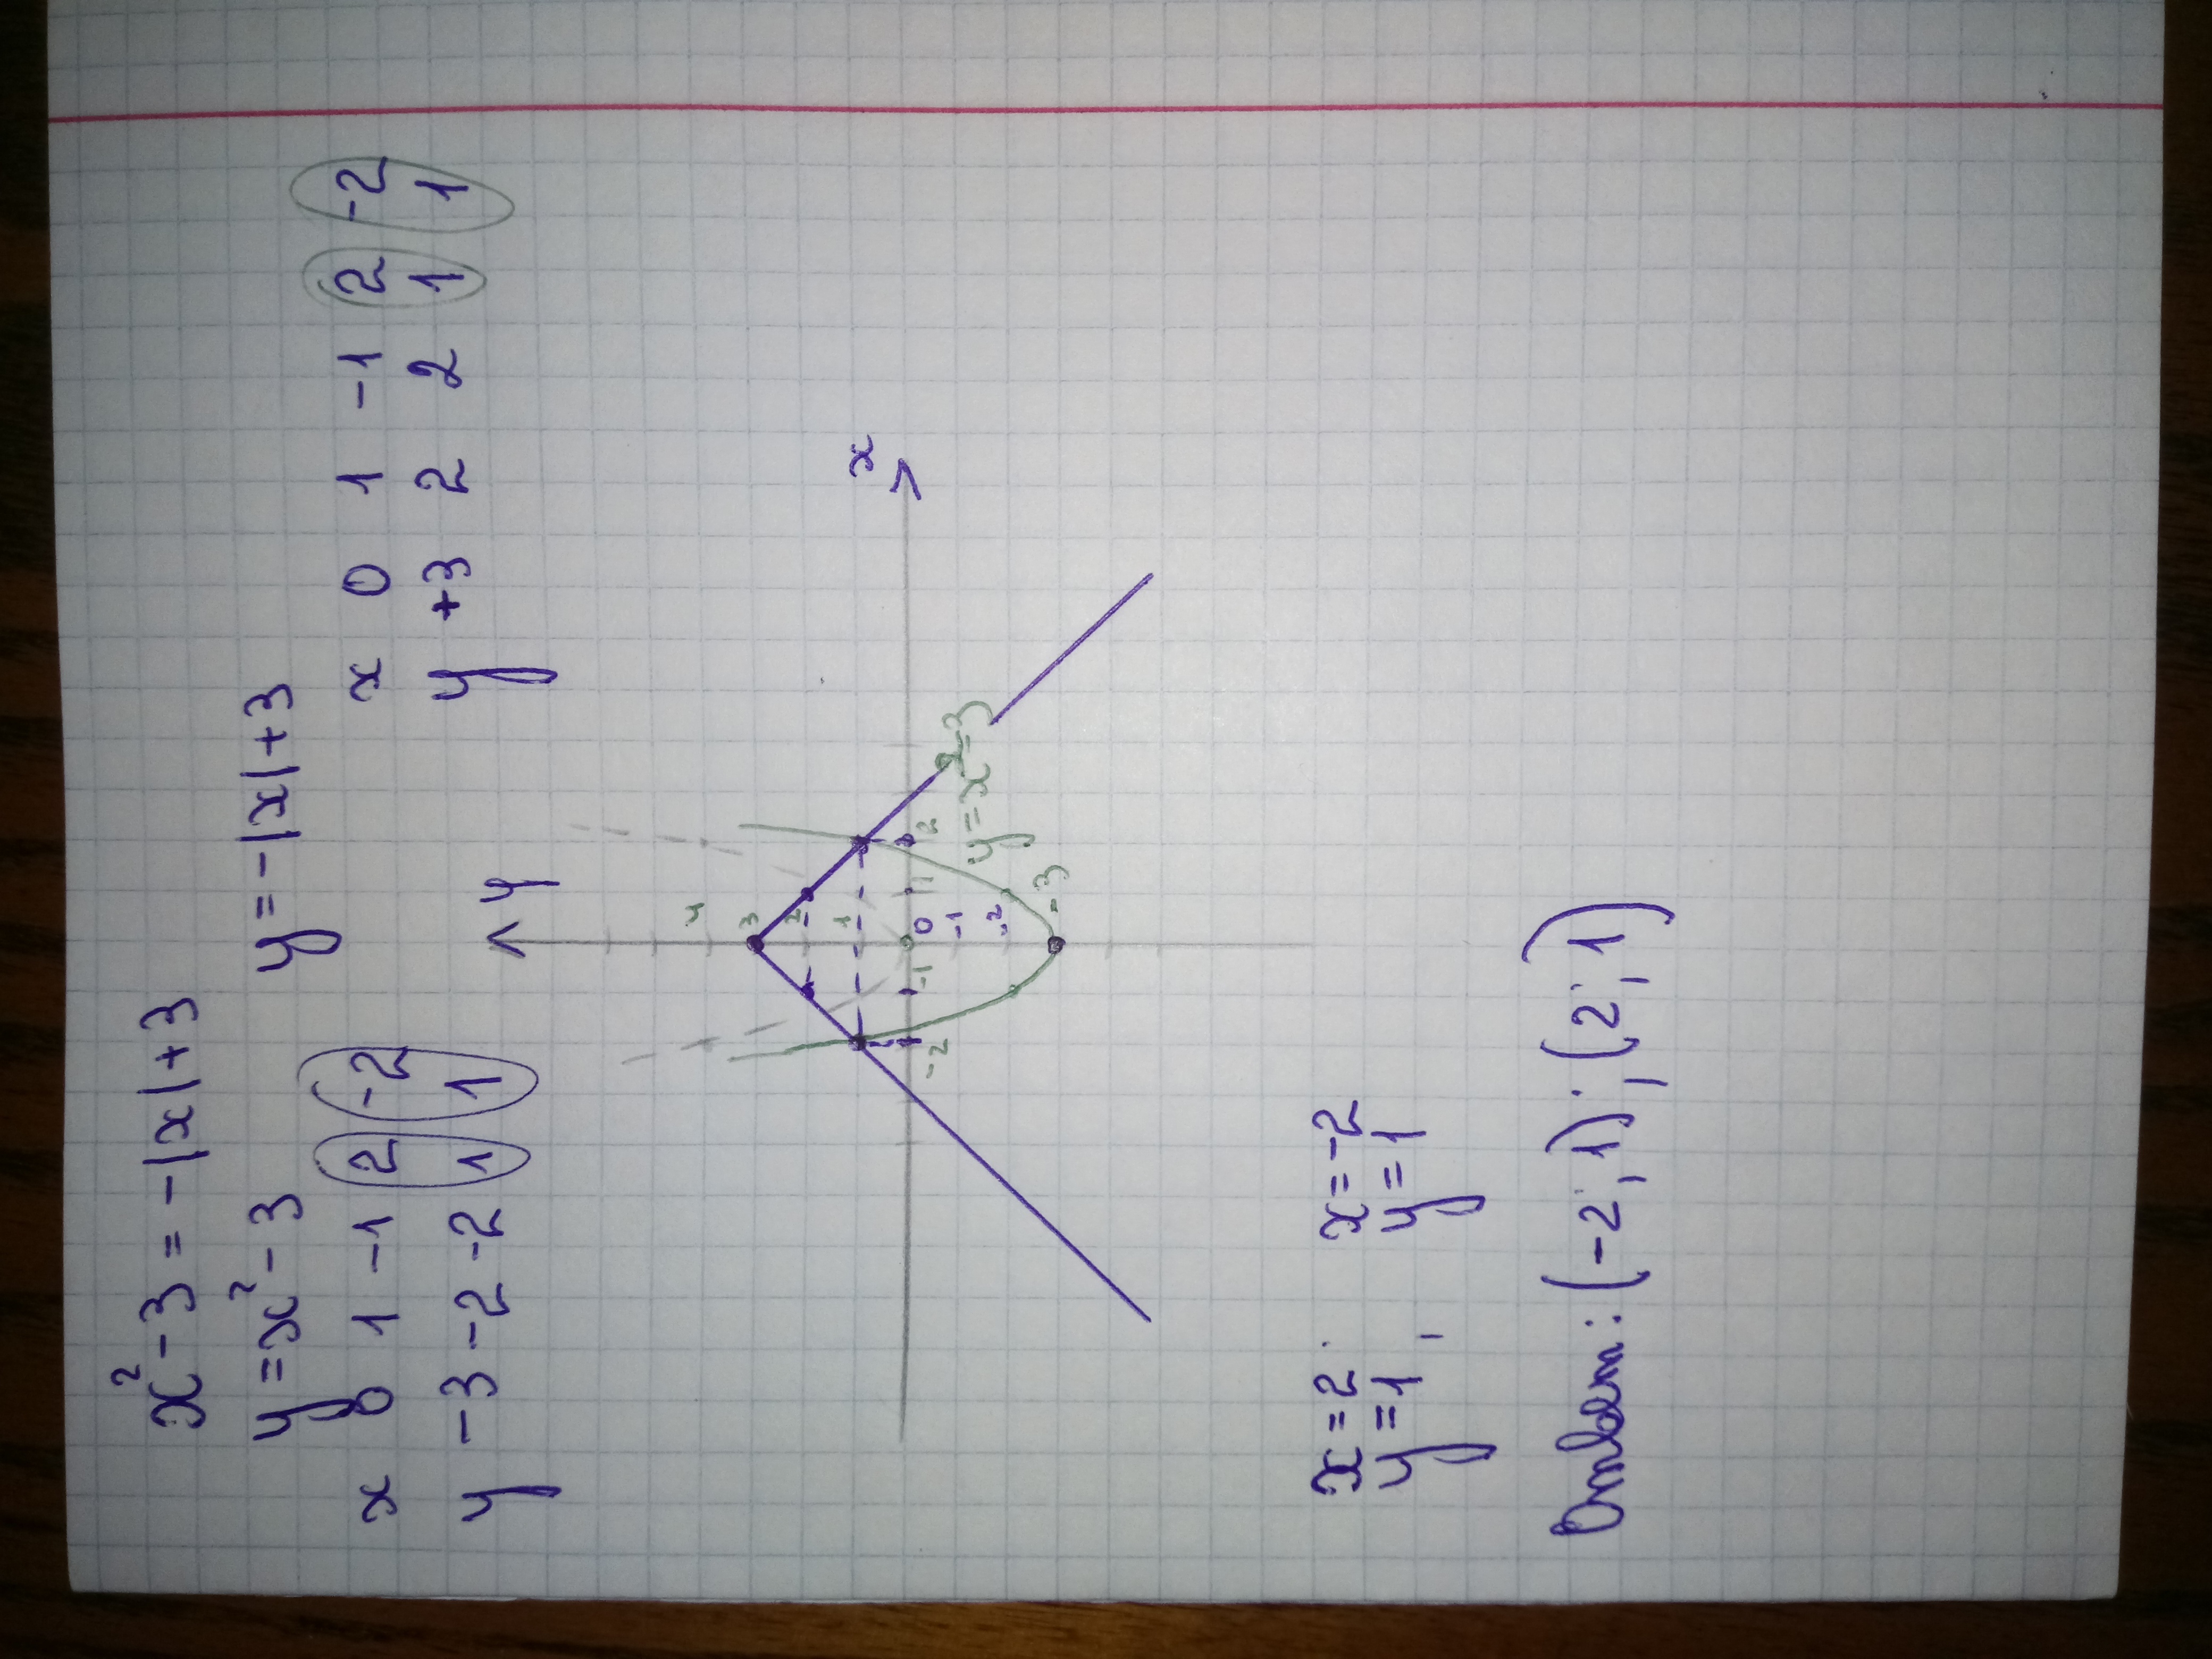 x² - 3 = - |x| + 3
y = x² - 3
y = - |x| + 3
x 0 1 -1 2 -2
y -3 -2 -2 1 1
x 0 1 -1 2 -2
y +3 2 2 1 1
y
x
4
3
2
1
0
-1
-2
-3
-2
-1
1
2
y = x² - 3
x = 2
y = 1
x = -2
y = 1
Ответ: (-2; 1); (2; 1)